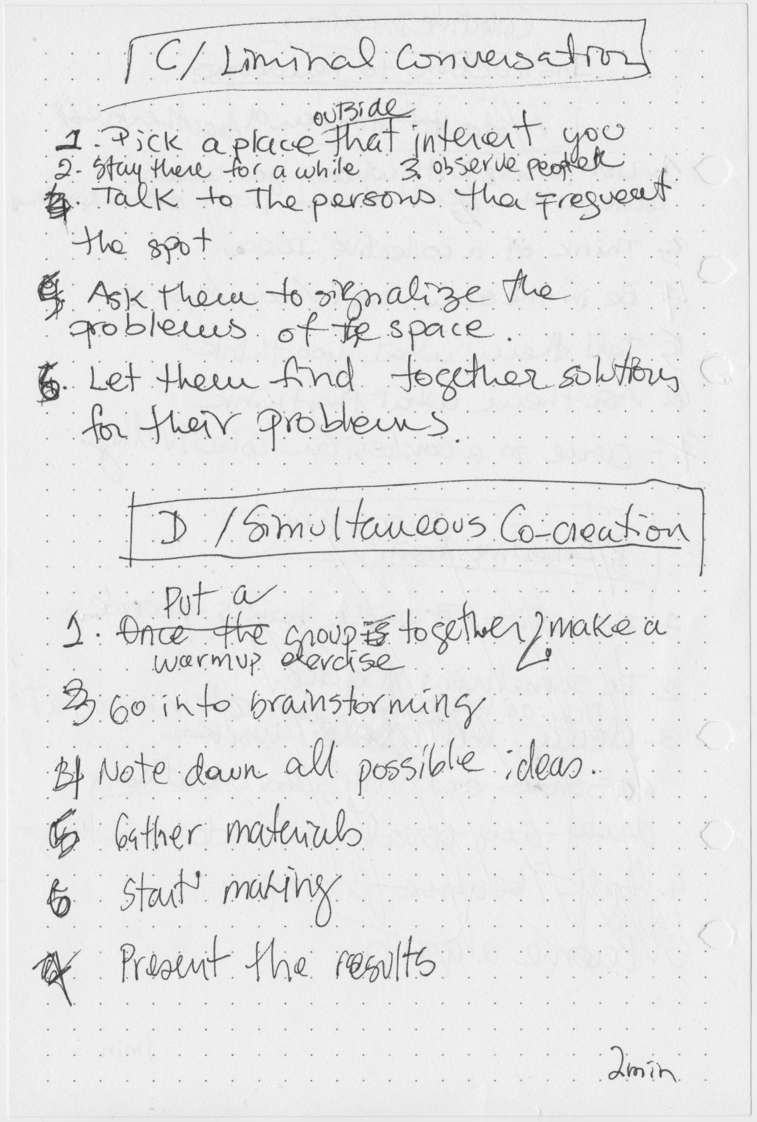 C/ Liminal Conversation
outside
1. Pick a place that interest you
2. Stay there for a while 3. observe people
4. Talk to the persons tha frequent
the spot
5. Ask them to signalize the
problems of the space.
6. Let them find together solutions
for their problems.
D / Simultaneous Co-creation
Put a
1. Once the group is together 2. make a
warmup exercise
3 Go into brainstorming
4 Note down all possible ideas.
5 Gather materials
6 Start making
7 Present the results
2min